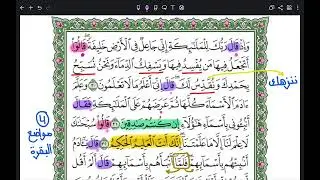 وَإِذْ قَالَ رَبُّكَ لِلْمَلَٰٓئِكَةِ إِنِّى جَاعِلٌ فِى ٱلْأَرْضِ خَلِيفَةً قَالُوٓا۟
أَتَجْعَلُ فِيهَا مَن يُفْسِدُ فِيهَا وَيَسْفِكُ ٱلدِّمَآءَ وَنَحْنُ نُسَبِّحُ
ننزهك
بِحَمْدِكَ وَنُقَدِّسُ لَكَ قَالَ إِنِّىٓ أَعْلَمُ مَا لَا تَعْلَمُونَ ٣٠ وَعَلَّمَ
ءَادَمَ ٱلْأَسْمَآءَ كُلَّهَا ثُمَّ عَرَضَهُمْ عَلَى ٱلْمَلَٰٓئِكَةِ فَقَالَ
أَنۢبِـُٔونِى بِأَسْمَآءِ هَٰٓؤُلَآءِ إِن كُنتُمْ صَٰدِقِينَ ٣١ قَالُوا۟ سُبْحَٰنَكَ
لَا عِلْمَ لَنَآ إِلَّا مَا عَلَّمْتَنَآ إِنَّكَ أَنتَ ٱلْعَلِيمُ ٱلْحَكِيمُ ٣٢ قَالَ يَٰٓـَٔادَمُ
أَنۢبِئْهُم بِأَسْمَآئِهِمْ فَلَمَّآ أَنۢبَأَهُم بِأَسْمَآئِهِمْ قَالَ أَلَمْ أَقُل
مواضع
البقرة